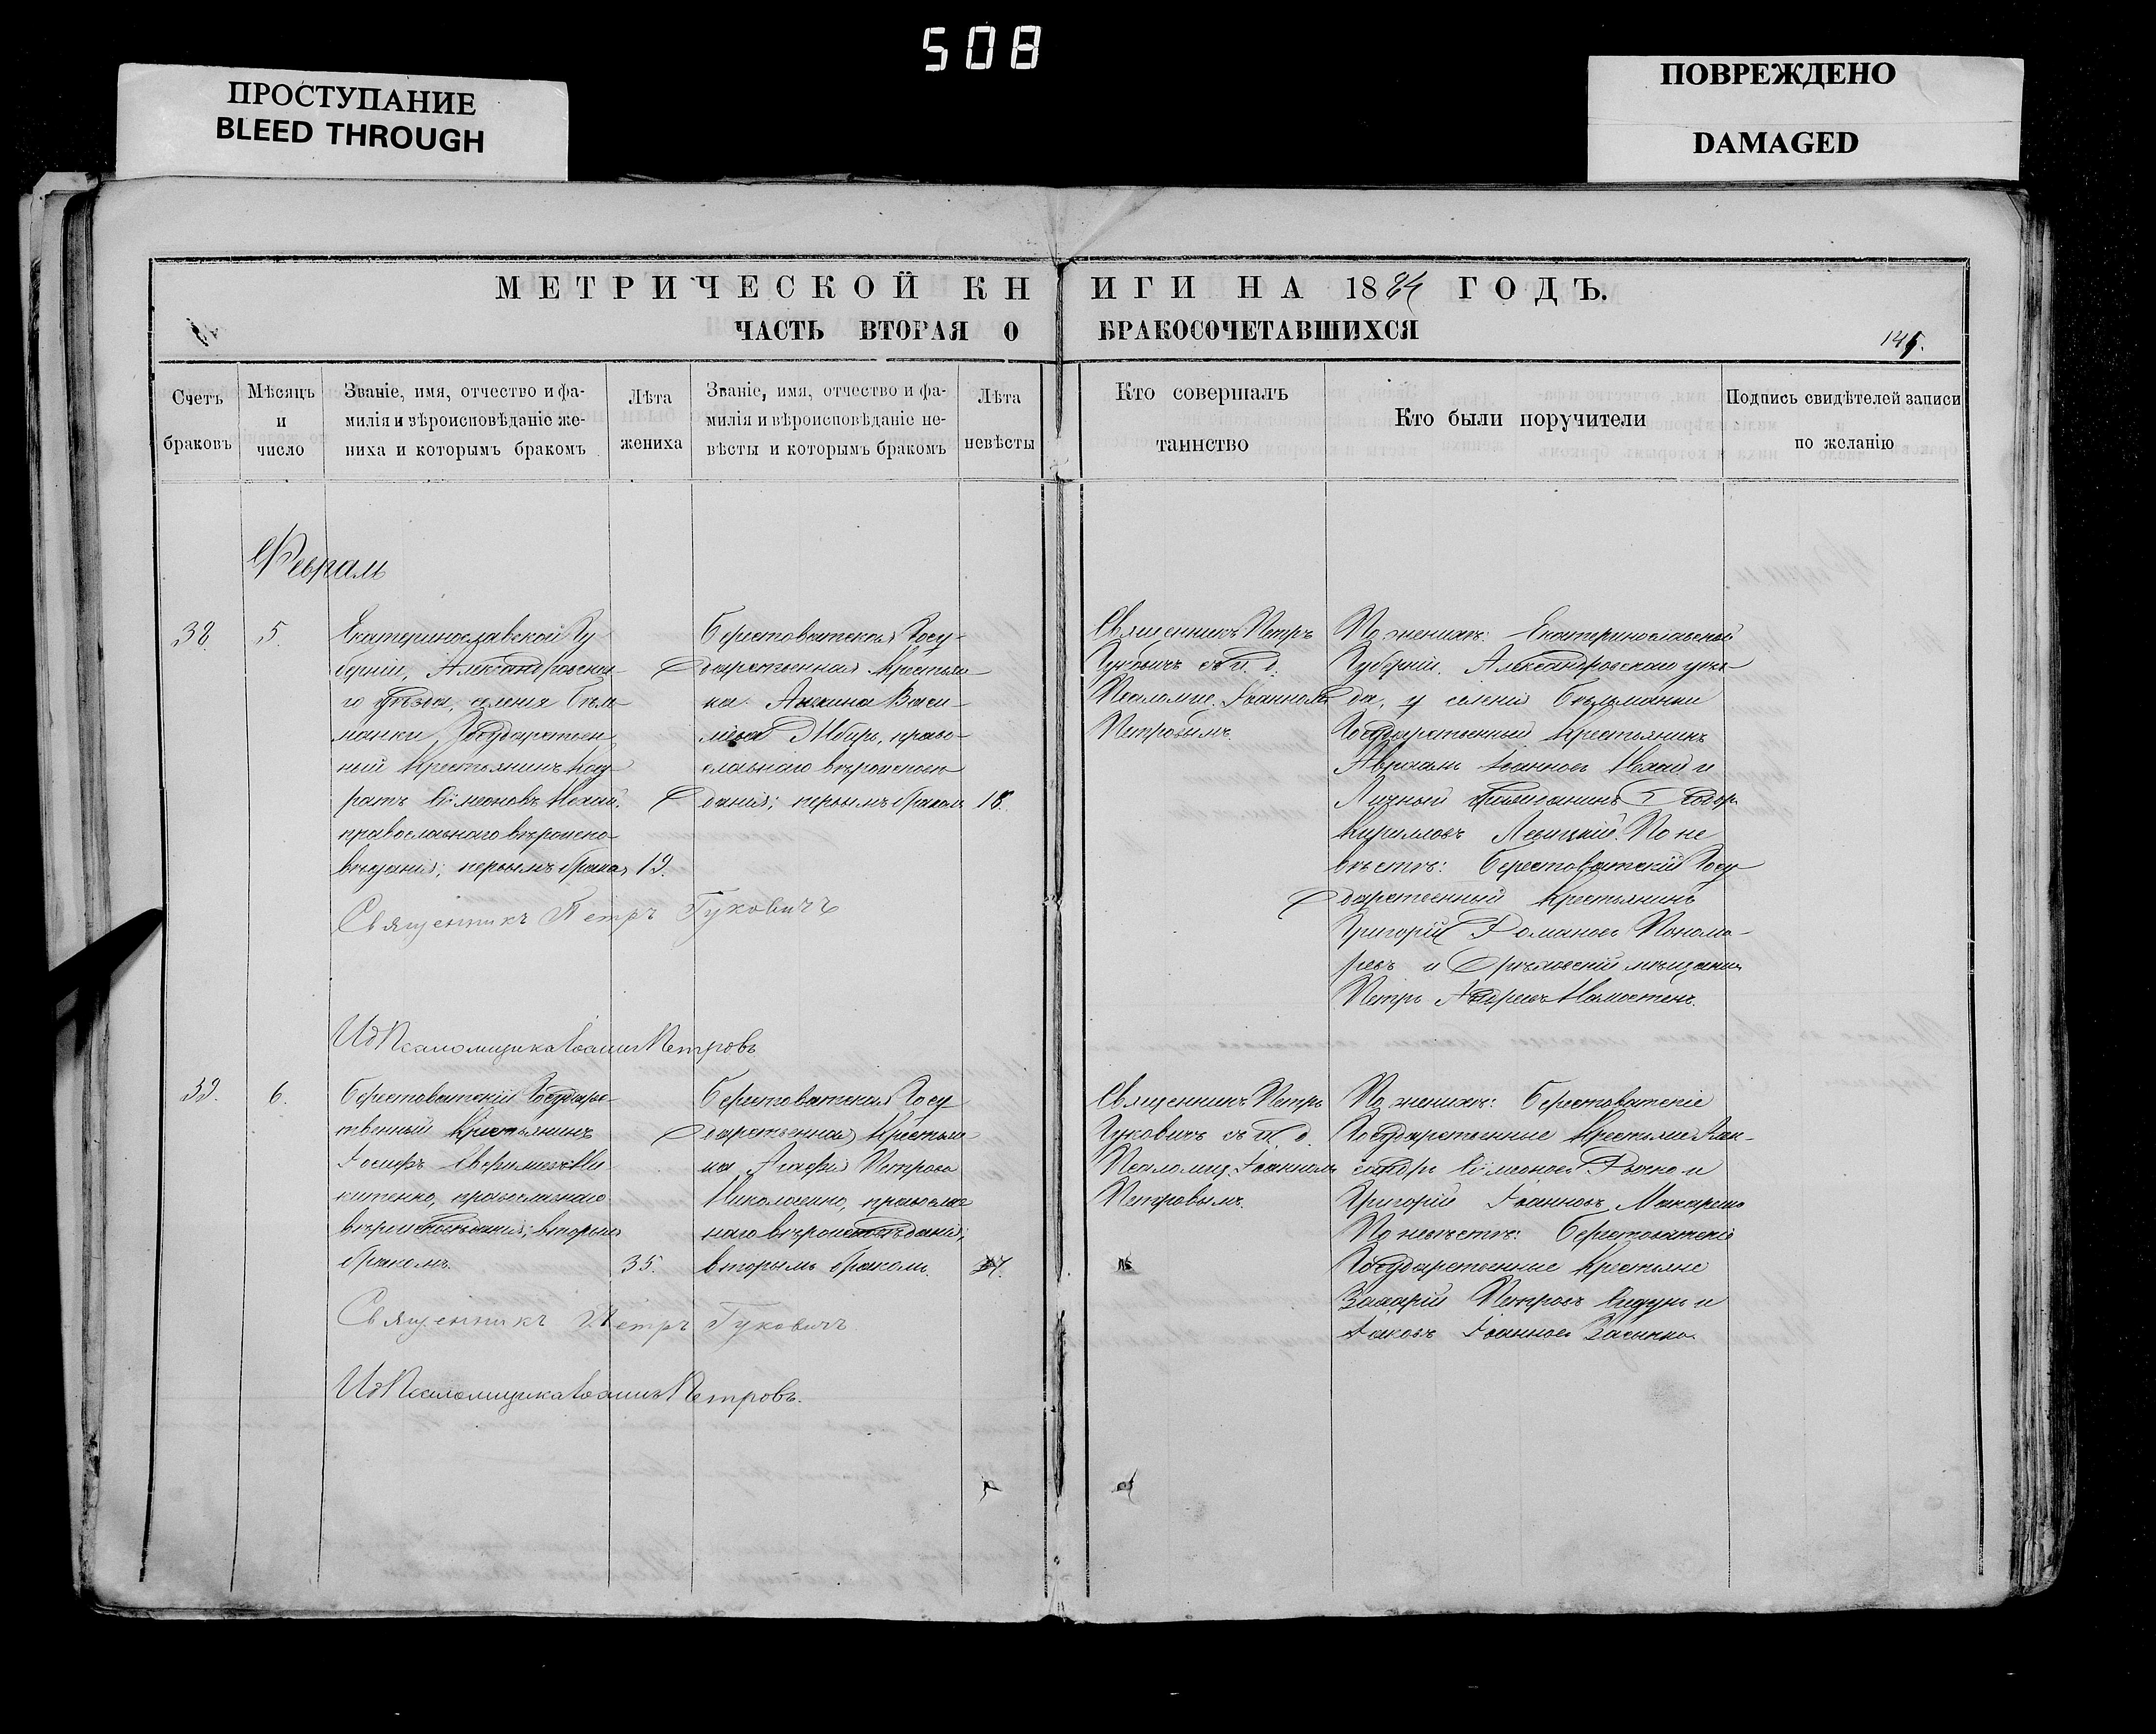 508
ПРОСТУПАНИЕ
BLEED THROUGH
ПОВРЕЖДЕНО
DAMAGED
МЕТРИЧЕСКОЙ КНИГИ НА 1884 ГОДЪ.
ЧАСТЬ ВТОРАЯ О БРАКОСОЧЕТАВШИХСЯ
Счетъ
браковъ
Мѣсяцъ
и
число
Званіе, имя, отчество и фа-
милія и вѣроисповѣданіе же-
ниха и которымъ бракомъ
Лѣта
жениха
Званіе, имя, отчество и фа-
милія и вѣроисповѣданіе не-
вѣсты и которымъ бракомъ
Лѣта
невѣсты
Кто совершалъ
таинство
Кто были поручители
Подпись свидѣтелей записи
по желанію
Февраль
38.
5.
Екатеринославской Гу
берніи, Александровска-
го уѣзда, селенія Бѣль
манки Государствен
ный Крестьянинъ
православнаго вѣроиспо-
вѣданія; первымъ бракомъ
19.
Берестоватская Госу-
дарственная Крестьян
ка Васи-
православнаго вѣроиспов
данія; первымъ бракомъ
18.
Священникъ Петръ
Гуковичъ съ И. д.
Псаломщ. Іоанномъ
Петровымъ.
По женихѣ: Екатеринославской
Губерніи, Александровскаго уѣз-
да, селенія Бѣльманки
Государственный Крестьянинъ
Іоанновъ и
Кирилловъ По не
вѣстѣ: Берестоватскій Госу
дарственный Крестьянинъ
Григорій Романовъ Понома-
ревъ и Орѣховскій мѣщанинъ
Петръ Андреевъ
Священникъ Петръ Гуковичъ
И д Псаломщика Іоаннъ Петровъ
39.
6.
Берестоватскій Государс-
твенный Крестьянинъ
Іосифъ Ни
китенко, православнаго
вѣроисповѣданія; вторымъ
бракомъ.
35.
Берестоватская Госу
дарственная Крестьян
ка Агафія Петрова
Николаенко, православ
наго вѣроисповѣданія;
вторымъ бракомъ.
Священникъ Петръ
Гуковичъ съ И. д.
Псаломщ. Іоанномъ
Петровымъ.
По женихѣ: Берестоватскіе
Государственные Крестьяне
и
Григорій Іоанновъ Макаренко
По невѣстѣ: Берестоватскіе
Государственные Крестьяне
Захарій Петровъ и
Іаковъ Іоанновъ
Священникъ Петръ Гуковичъ
И д Псаломщика Іоаннъ Петровъ.